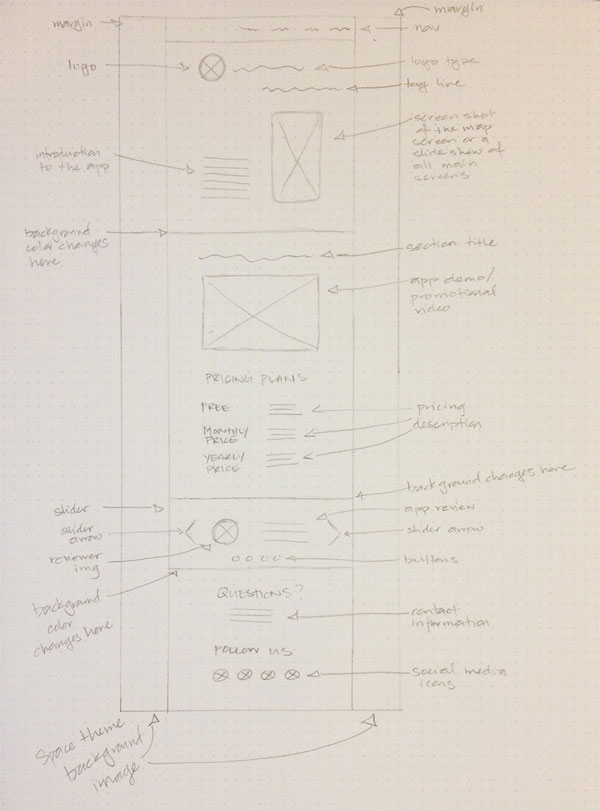 margin
margin
nav
logo
logo type
tag line
screen shot
of the map
screen or a
slide show of
all main
screens
introduction
to the app
background
color changes
here
section title
app demo/
promotional
video
PRICING PLANS
FREE
MONTHLY
PRICE
YEARLY
PRICE
pricing
description
background changes here
slider
app review
slider
arrow
slider arrow
reviewer
img
buttons
background
color
changes here
QUESTIONS?
contact
information
FOLLOW US
social media
icons
Space theme
background
image